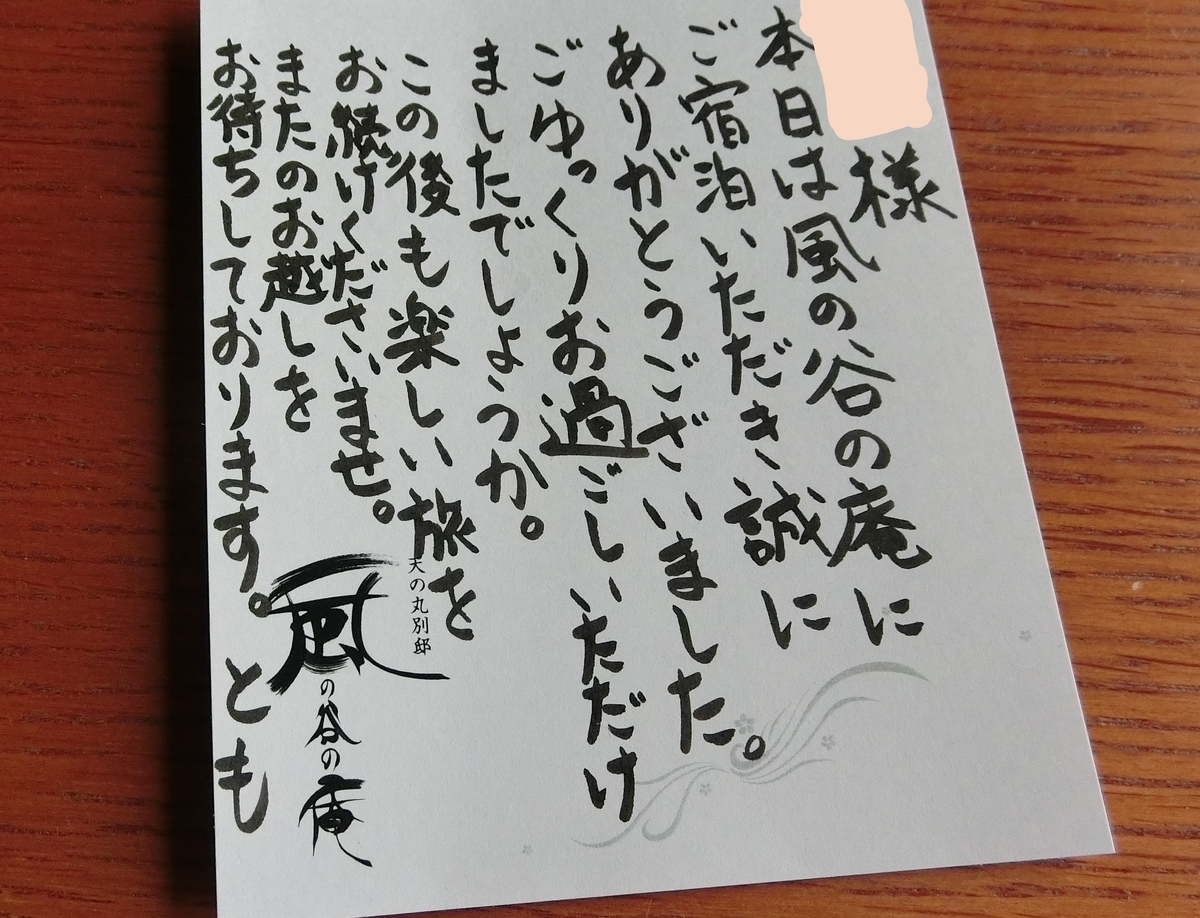 様
本日は風の谷の庵に
ご宿泊いただき、誠に
ありがとうございました。
ごゆっくりお過ごしいただけ
ましたでしょうか。
この後も楽しい旅を
お続けくださいませ。
またのお越しを
お待ちしております。とも
天の丸別邸
風の谷の庵